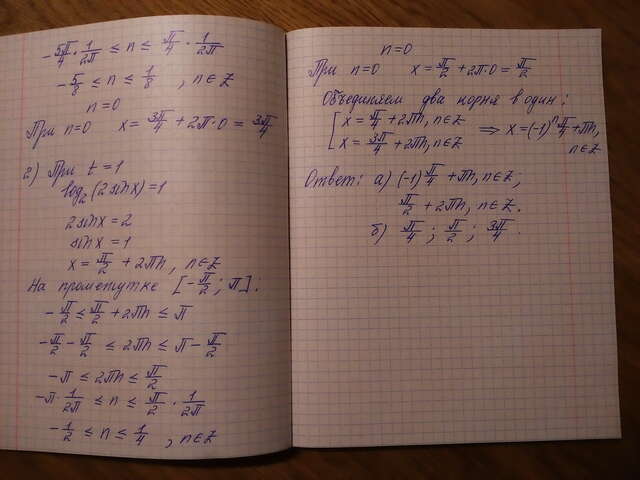 -5π/4 · 1/2π ≤ n ≤ π/4 · 1/2π
-5/8 ≤ n ≤ 1/8 , n∈Z
n=0
При n=0 x = 3π/4 + 2π·0 = 3π/4
2) При t=1
log₂(2sinx)=1
2sinx=2
sinx=1
x = π/2 + 2πn, n∈Z
На промежутке [-π/2; π]:
-π/2 ≤ π/2 + 2πn ≤ π
-π/2 - π/2 ≤ 2πn ≤ π - π/2
-π ≤ 2πn ≤ π/2
-π · 1/2π ≤ n ≤ π/2 · 1/2π
-1/2 ≤ n ≤ 1/4 , n∈Z
n=0
При n=0 x = π/2 + 2π·0 = π/2
Объединяем два корня в один:
[x = π/4 + 2πn, n∈Z
x = 3π/4 + 2πn, n∈Z ⇒ x = (-1)ⁿ π/4 + πn,
n∈Z
Ответ: а) (-1)ⁿ π/4 + πn, n∈Z;
π/2 + 2πn, n∈Z.
б) π/4 ; π/2 ; 3π/4 .